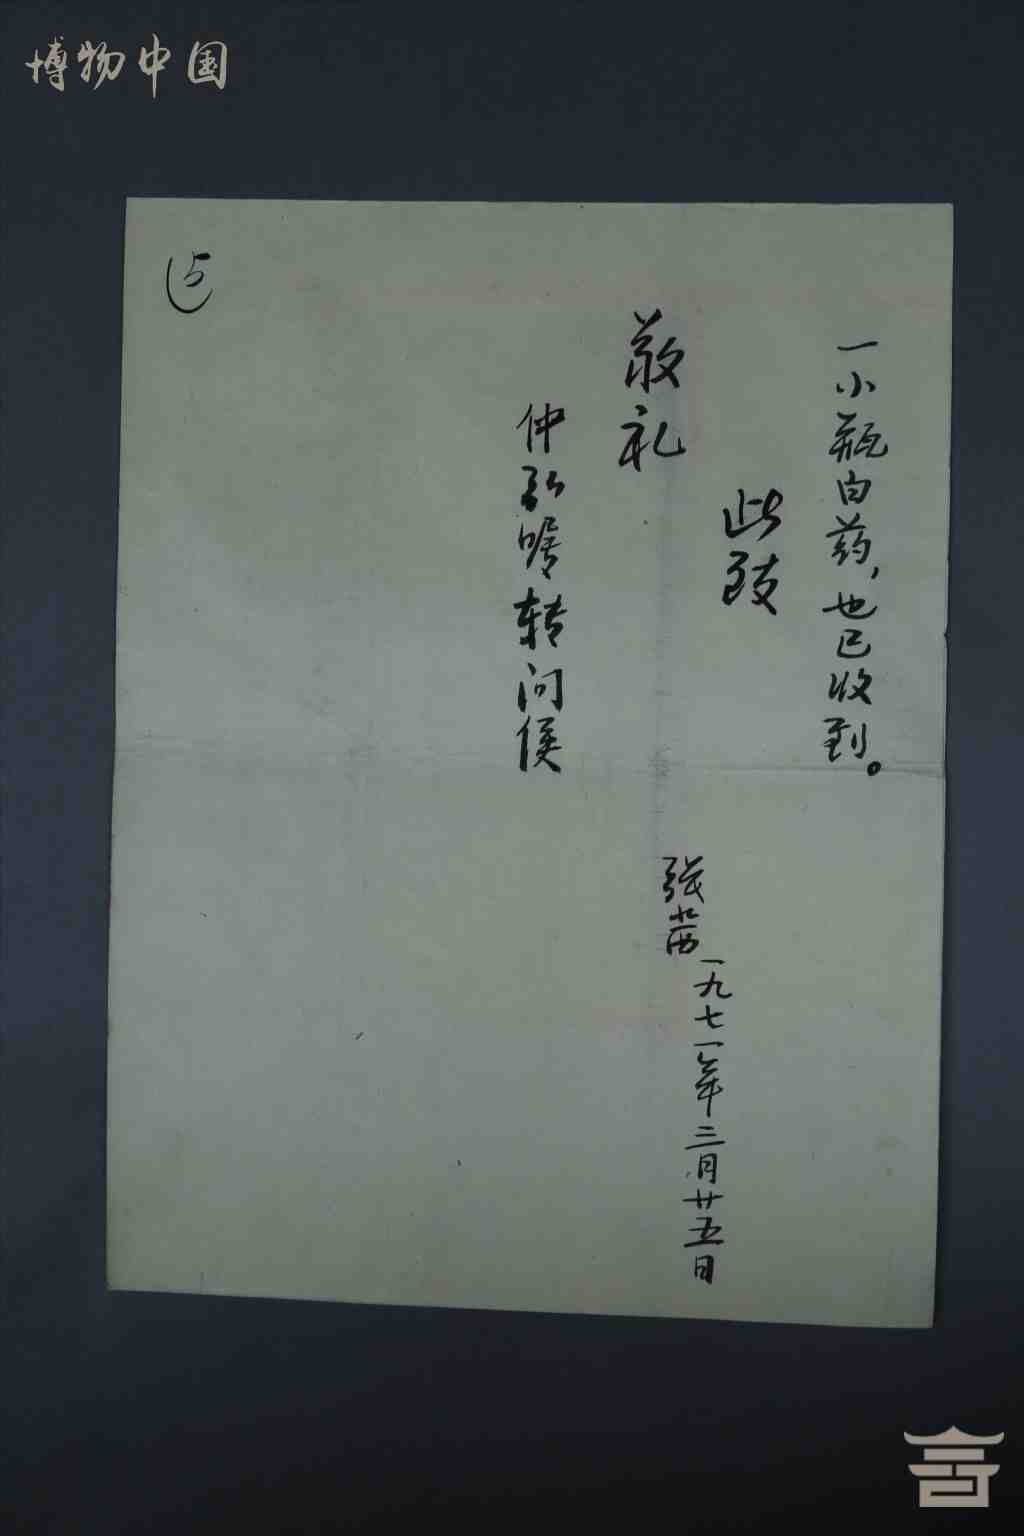 博物中国
5
一小瓶白药，也已收到。
此致
敬礼
张茜
一九七一年三月廿五日
仲弘嘱转问候